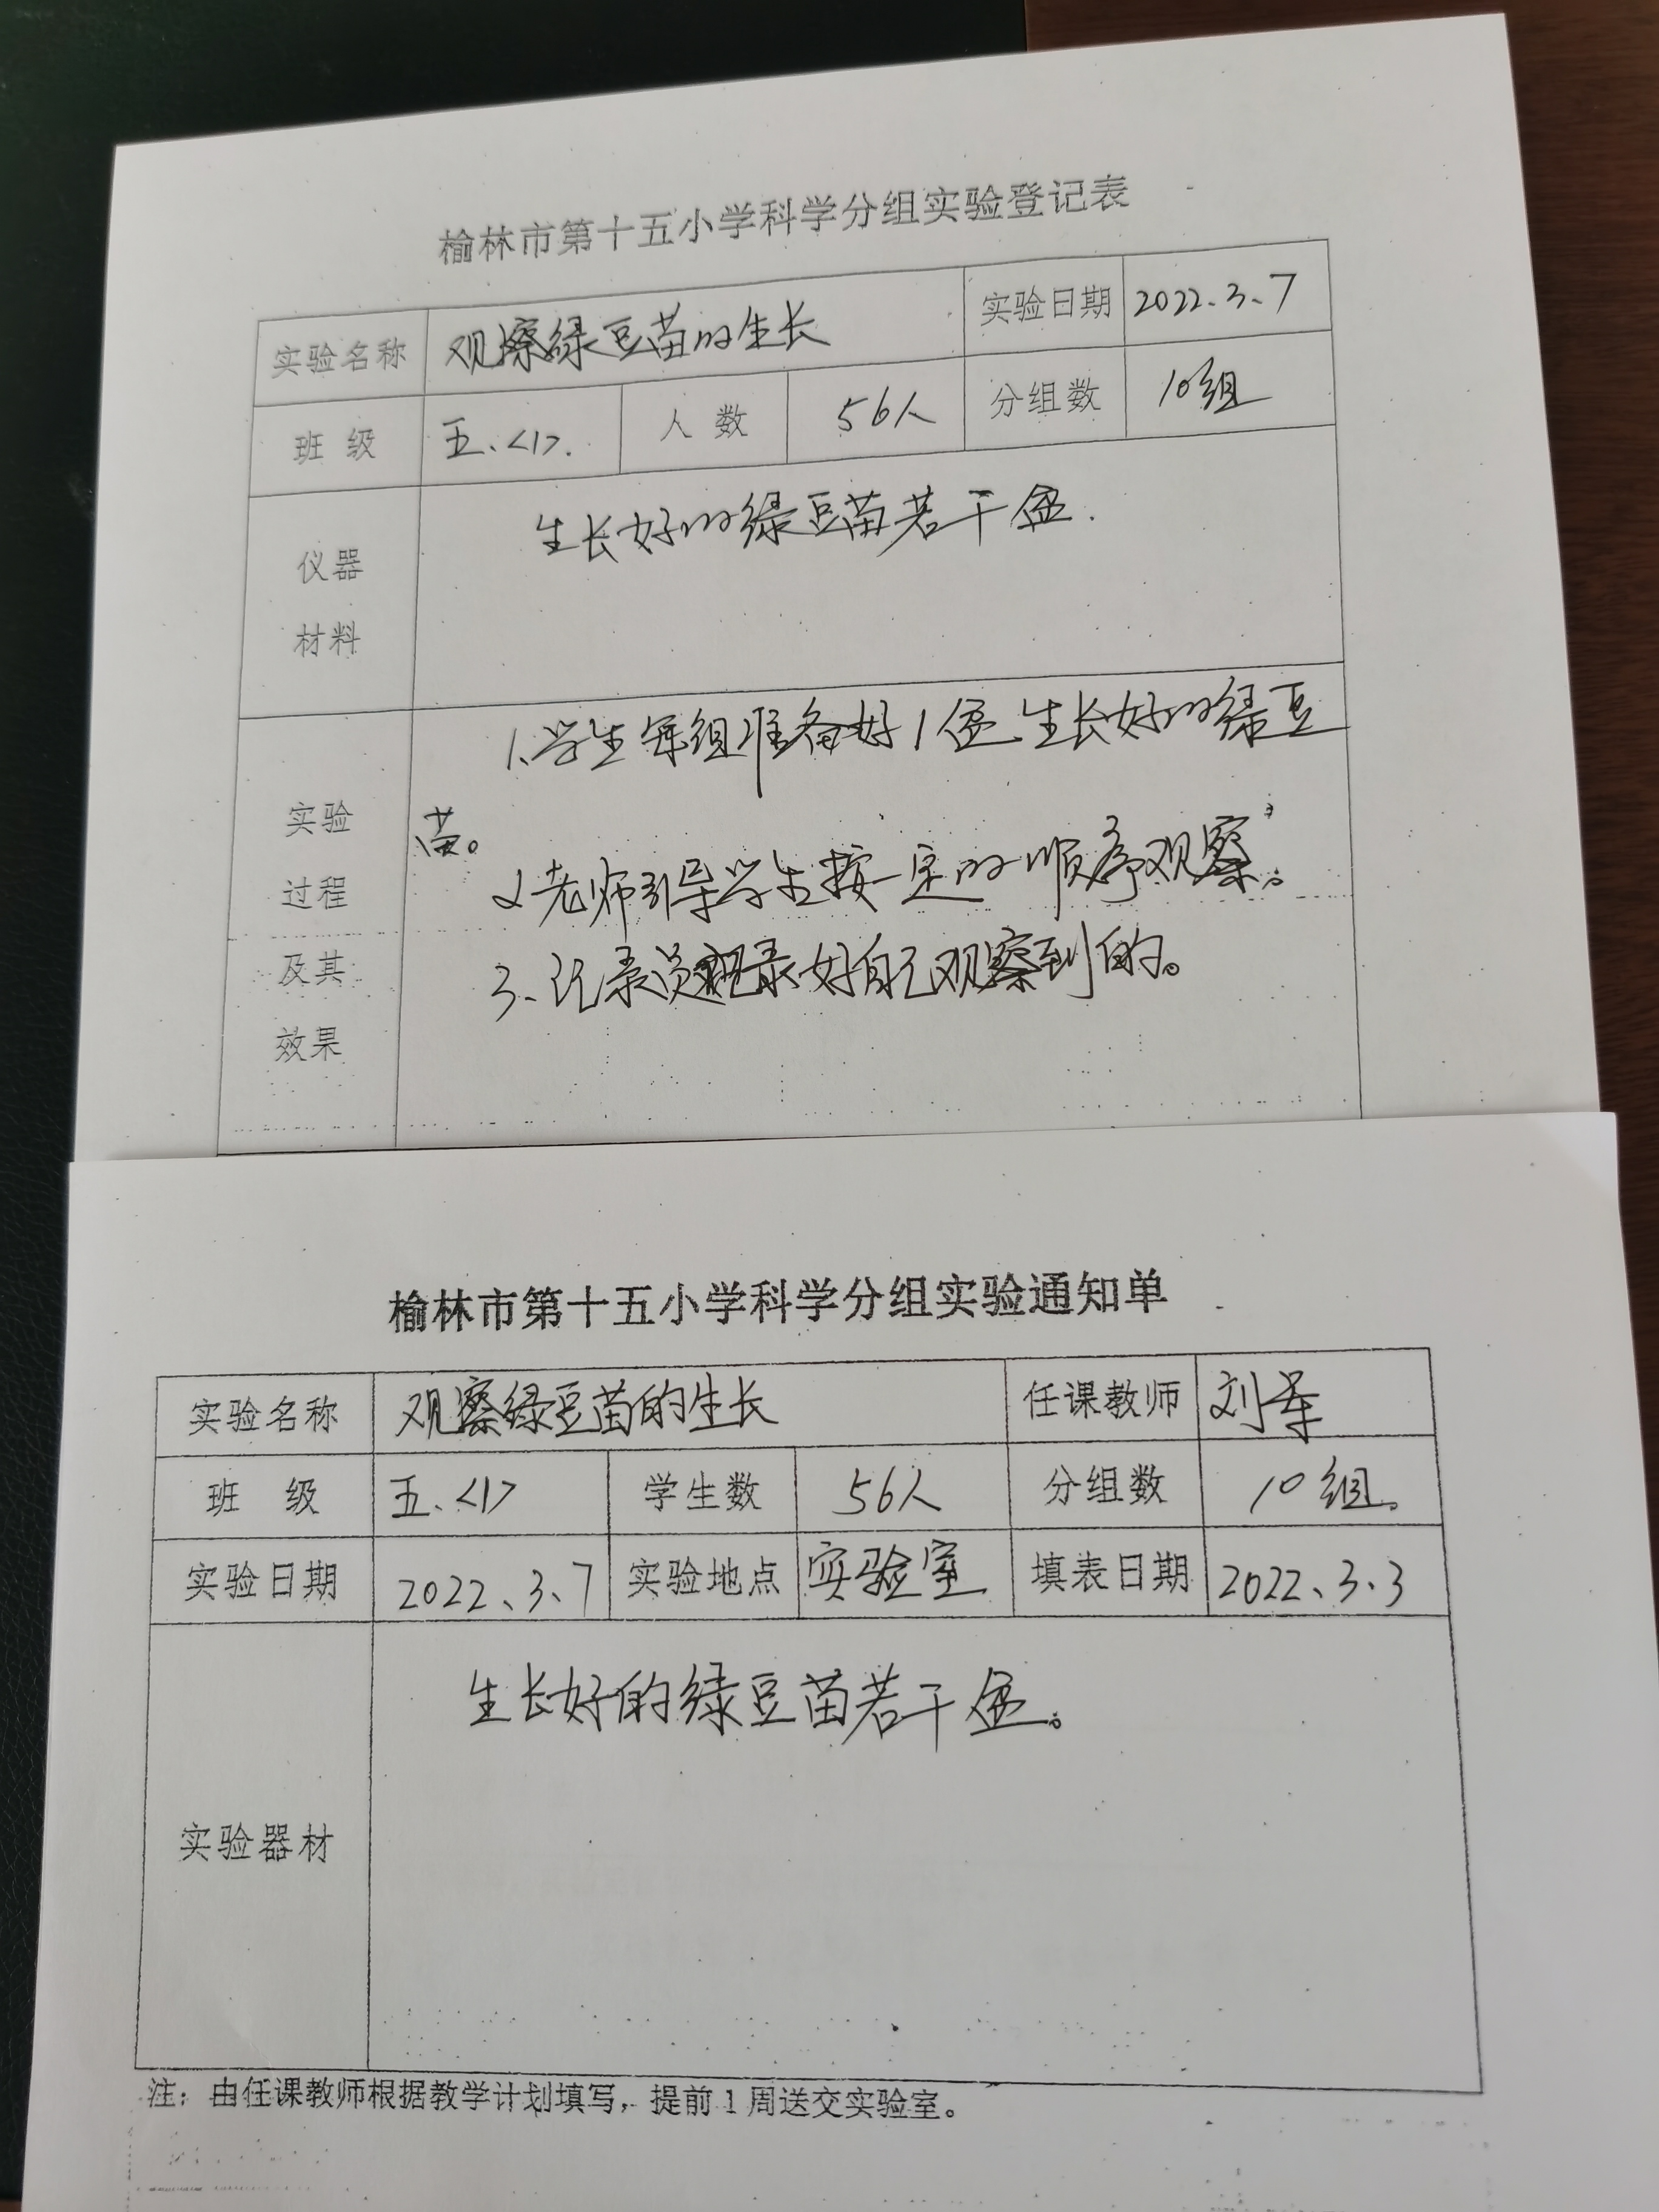 榆林市第十五小学科学分组实验登记表
实验名称 观察绿豆苗的生长 实验日期 2022、3、7
班 级 五、<1>. 人 数 56人 分组数 10组
仪器
材料
生长好的绿豆苗若干盆.
实验
过程
及其
效果
1、学生每组准备好1盆生长好的绿豆
苗。
2老师引导学生按一定的顺序观察。
3、记录员记录好自己观察到的。
榆林市第十五小学科学分组实验通知单
实验名称 观察绿豆苗的生长 任课教师 刘军
班 级 五、<1> 学生数 56人 分组数 10组。
实验日期 2022、3、7 实验地点 实验室 填表日期 2022、3、3
实验器材 生长好的绿豆苗若干盆。
注：由任课教师根据教学计划填写，提前1周送交实验室。